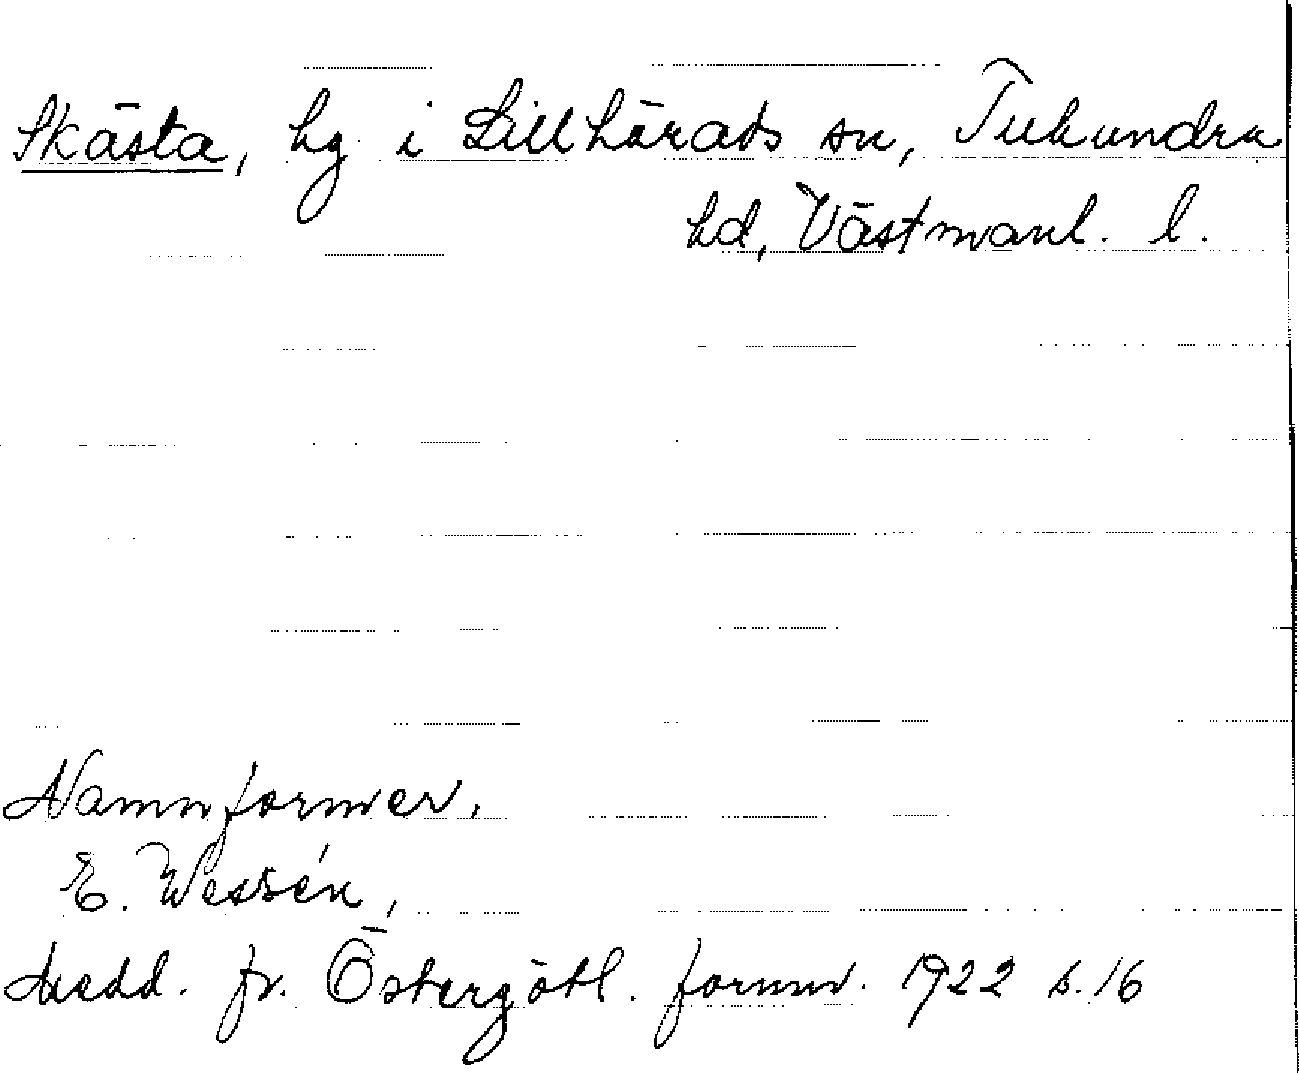 Skästa, hg i Lillhärads sn, Tuhundra
hd, Västmanl. l.
Namnformer.
E. Wessén,
Medd. fr. Östergötl. fornm. 1922 s. 16